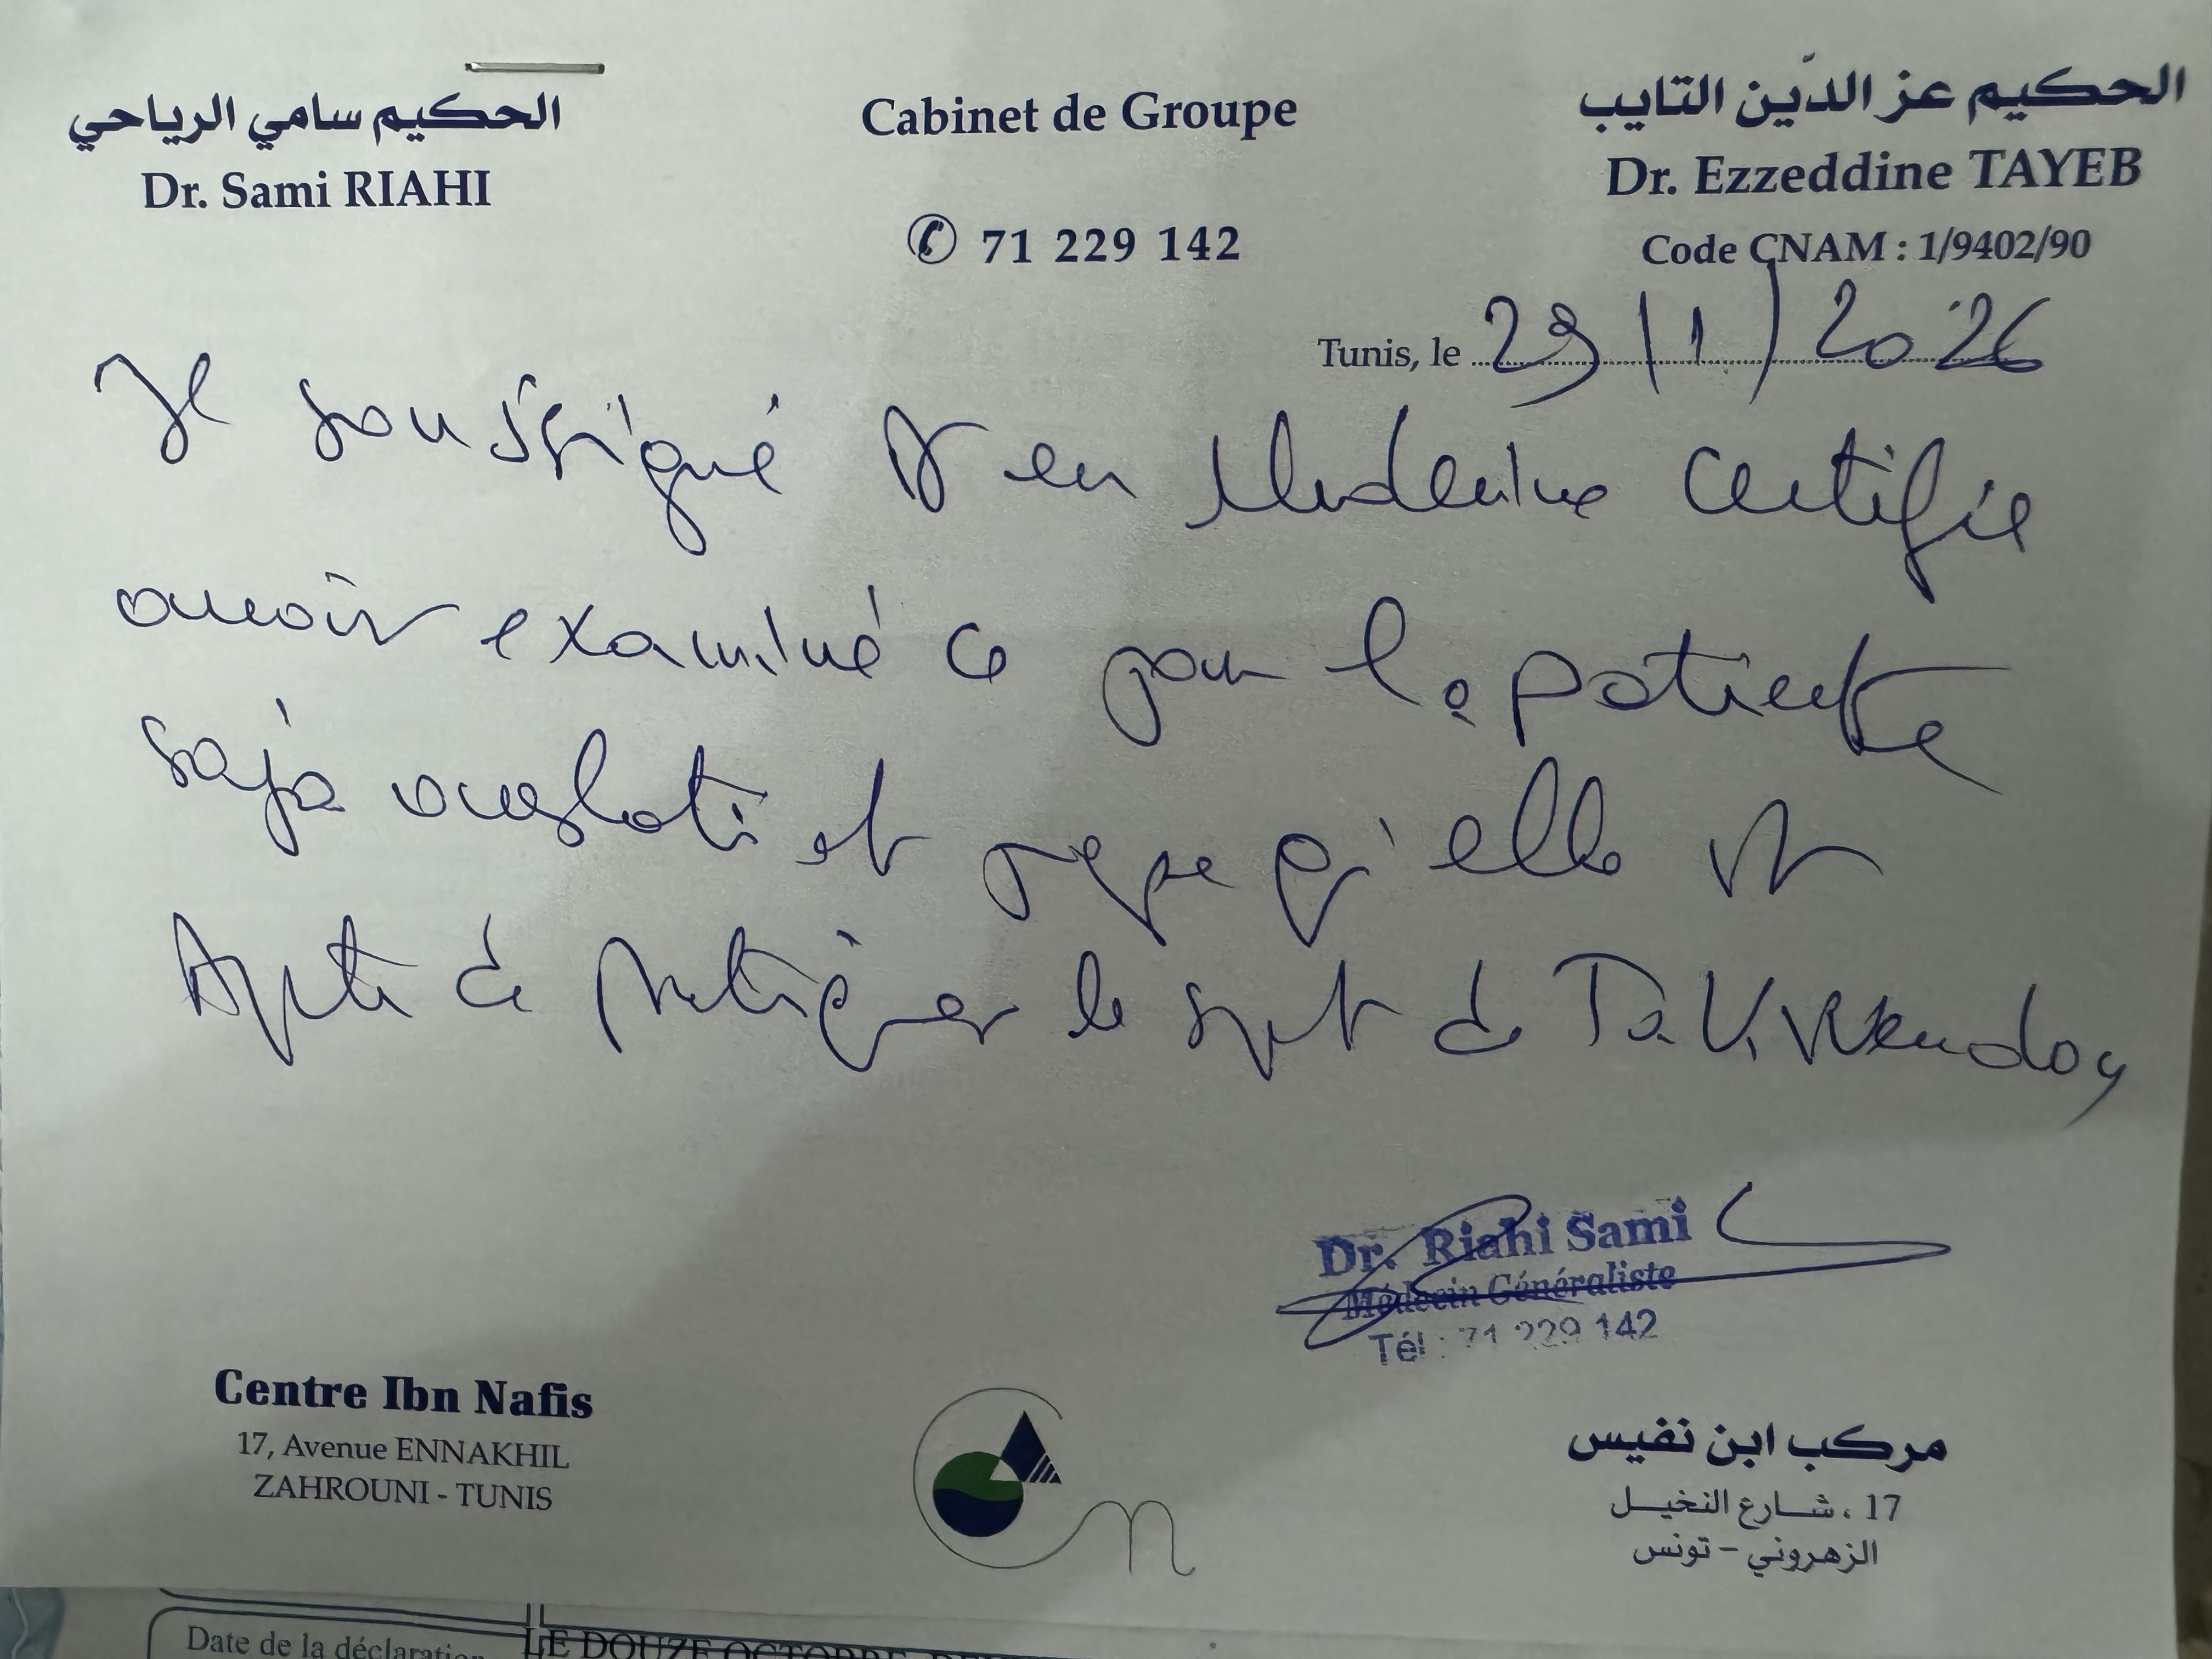 الحكيم سامي الرياحي
Dr. Sami RIAHI
Cabinet de Groupe
✆ 71 229 142
الحكيم عز الدّين التايب
Dr. Ezzeddine TAYEB
Code CNAM : 1/9402/90
Tunis, le 29/1/2026
Je soussigné Dr en Medecine certifie
avoir examiné ce jour la patiente
Saja oueslati et qu'elle est
Apte à pratiquer le sport de Taekwondo
Dr. Riahi Sami
Médecin Généraliste
Tél : 71 229 142
Centre Ibn Nafis
17, Avenue ENNAKHIL
ZAHROUNI - TUNIS
مركب ابن نفيس
17 ، شارع النخيل
الزهروني - تونس
Date de la déclaration
LE DOUZE OCTOBRE